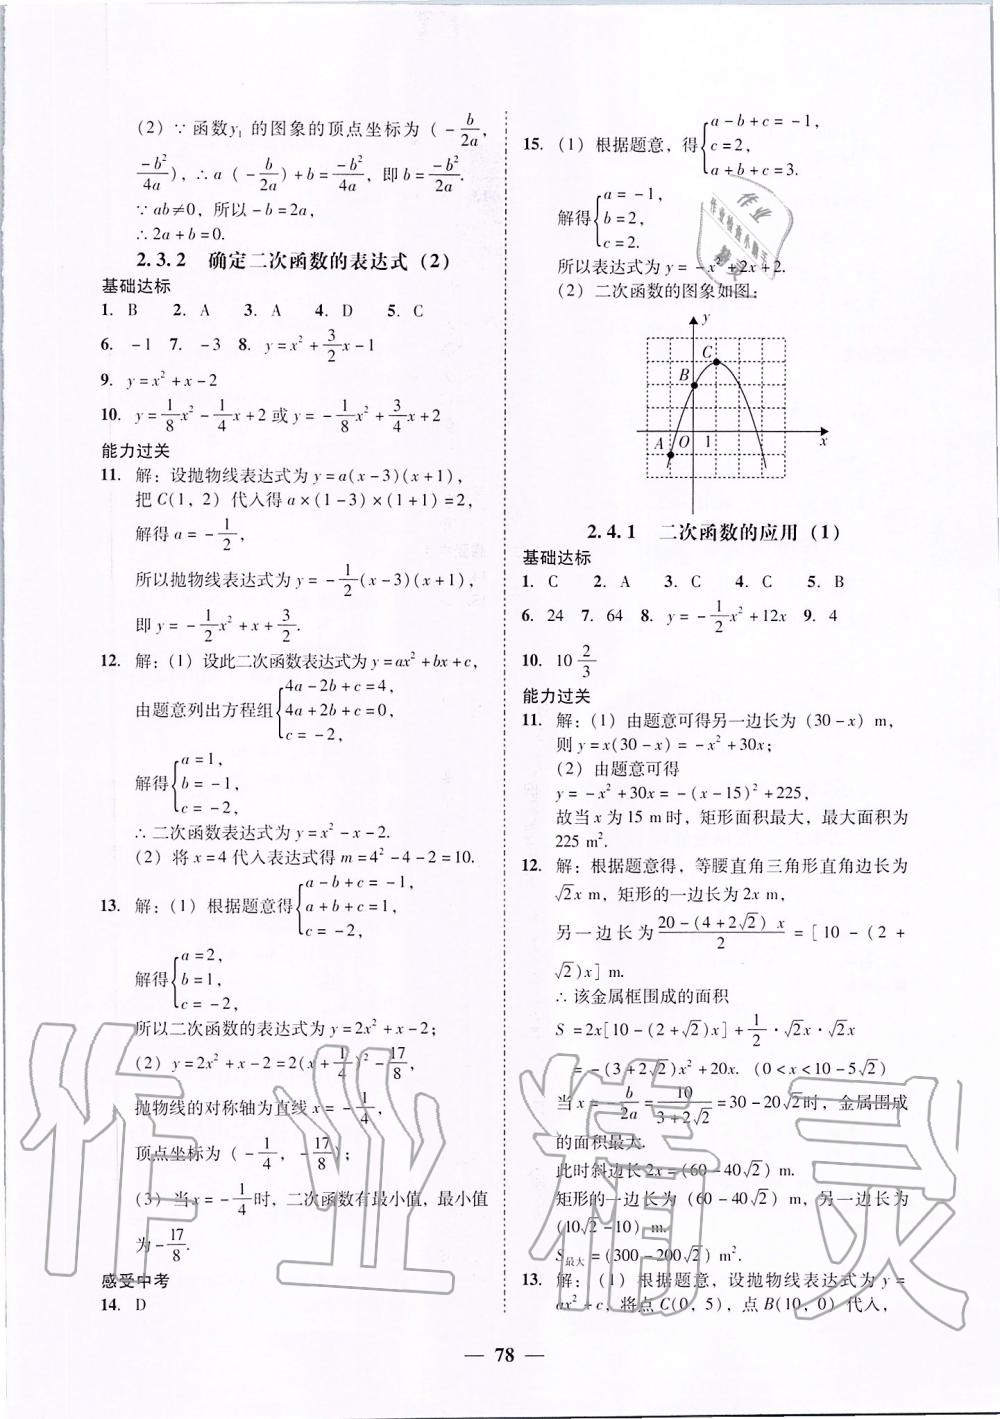 (2) ∵ 函数y₁ 的图象的顶点坐标为 (-b/2a,
-b²/4a), ∴ a (-b/2a)+b=-b²/4a, 即 b=-b²/2a.
∵ ab≠0, 所以-b=2a,
∴ 2a+b=0.
2.3.2 确定二次函数的表达式 (2)
基础达标
1. B 2. A 3. A 4. D 5. C
6. -1 7. -3 8. y=x²+3/2x-1
9. y=x²+x-2
10. y=1/8x²-1/4x+2 或 y=-1/8x²+3/4x+2
能力过关
11. 解: 设抛物线表达式为 y=a(x-3)(x+1),
把 C(1, 2) 代入得 a×(1-3)×(1+1)=2,
解得 a=-1/2,
所以抛物线表达式为 y=-1/2(x-3)(x+1),
即 y=-1/2x²+x+3/2.
12. 解: (1) 设此二次函数表达式为 y=ax²+bx+c,
由题意列出方程组{4a-2b+c=4,
4a+2b+c=0,
c=-2,
解得{a=1,
b=-1,
c=-2,
∴ 二次函数表达式为 y=x²-x-2.
(2) 将 x=4 代入表达式得 m=4²-4-2=10.
13. 解: (1) 根据题意得{a-b+c=-1,
a+b+c=1,
c=-2,
解得{a=2,
b=1,
c=-2,
所以二次函数的表达式为 y=2x²+x-2;
(2) y=2x²+x-2=2(x+1/4)²-17/8,
抛物线的对称轴为直线 x=-1/4,
顶点坐标为 (-1/4, -17/8);
(3) 当 x=-1/4时, 二次函数有最小值, 最小值
为-17/8.
感受中考
14. D
15. (1) 根据题意, 得{a-b+c=-1,
c=2,
a+b+c=3.
解得{a=-1,
b=2,
c=2.
所以表达式为 y=-x²+2x+2.
(2) 二次函数的图象如图:
y
C
B
A O 1 x
2.4.1 二次函数的应用 (1)
基础达标
1. C 2. A 3. C 4. C 5. B
6. 24 7. 64 8. y=-1/2x²+12x 9. 4
10. 10 2/3
能力过关
11. 解: (1) 由题意可得另一边长为 (30-x) m,
则 y=x(30-x)=-x²+30x;
(2) 由题意可得
y=-x²+30x=-(x-15)²+225,
故当 x 为 15 m 时, 矩形面积最大, 最大面积为
225 m².
12. 解: 根据题意得, 等腰直角三角形直角边长为
√2x m, 矩形的一边长为 2x m,
另一边长为 20-(4+2√2)x/2=[10-(2+
√2)x] m.
∴ 该金属框围成的面积
S=2x[10-(2+√2)x]+1/2·√2x·√2x
=-(3+2√2)x²+20x. (0<x<10-5√2)
当 x=-b/2a=10/3+2√2=30-20√2时, 金属围成
的面积最大.
此时斜边长 2x=(60-40√2) m.
矩形的一边长为 (60-40√2) m, 另一边长为
(10√2-10) m.
S最大=(300-200√2) m².
13. 解: (1) 根据题意, 设抛物线表达式为 y=
ax²+c, 将点 C(0, 5), 点 B(10, 0) 代入,
— 78 —
作业精灵